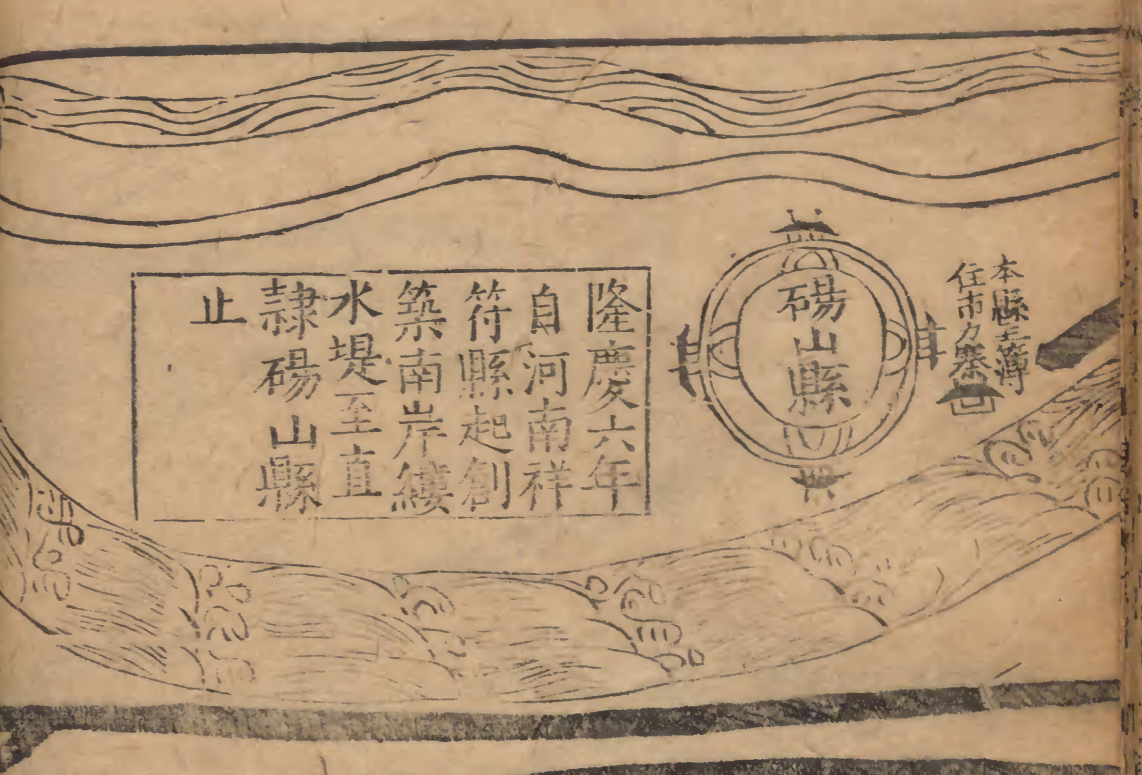 本縣主簿
住市力寨
碭山縣
隆慶六年
自河南祥
符縣起創
築南岸縷
水堤至直
隸碭山縣
止